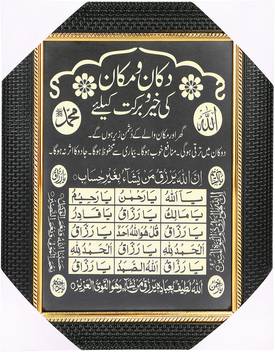 دکان و مکان
کی خیر و برکت کیلئے
الله
محمد
گھر اور مکان والے کے دشمن زیر ہوں گے۔
دوکان میں ترقی ہوگی۔ منافع خوب ہوگا۔ بیماری سے محفوظ ہوگا۔ جادو کا اثر نہ ہوگا۔
اِنَّ اللّٰهَ يَرْزُقُ مَنْ يَّشَآءُ بِغَيْرِ حِسَابٍ
يَا اَللّٰهُ يَا رَحْمٰنُ يَا رَحِيْمُ
يَا مَالِكُ يَا رَزَّاقُ يَا قَادِرُ
يَا رَزَّاقُ قُلْ هُوَ اللّٰهُ اَحَدٌ يَا رَزَّاقُ
اَلْحَمْدُ لِلّٰهِ يَا رَزَّاقُ اَلْحَمْدُ لِلّٰهِ
يَا رَزَّاقُ اَللّٰهُ الصَّمَدُ يَا رَزَّاقُ
اَللّٰهُ لَطِيْفٌ بِعِبَادِهٖ يَرْزُقُ مَنْ يَّشَآءُ وَهُوَ الْقَوِيُّ الْعَزِيْزُ